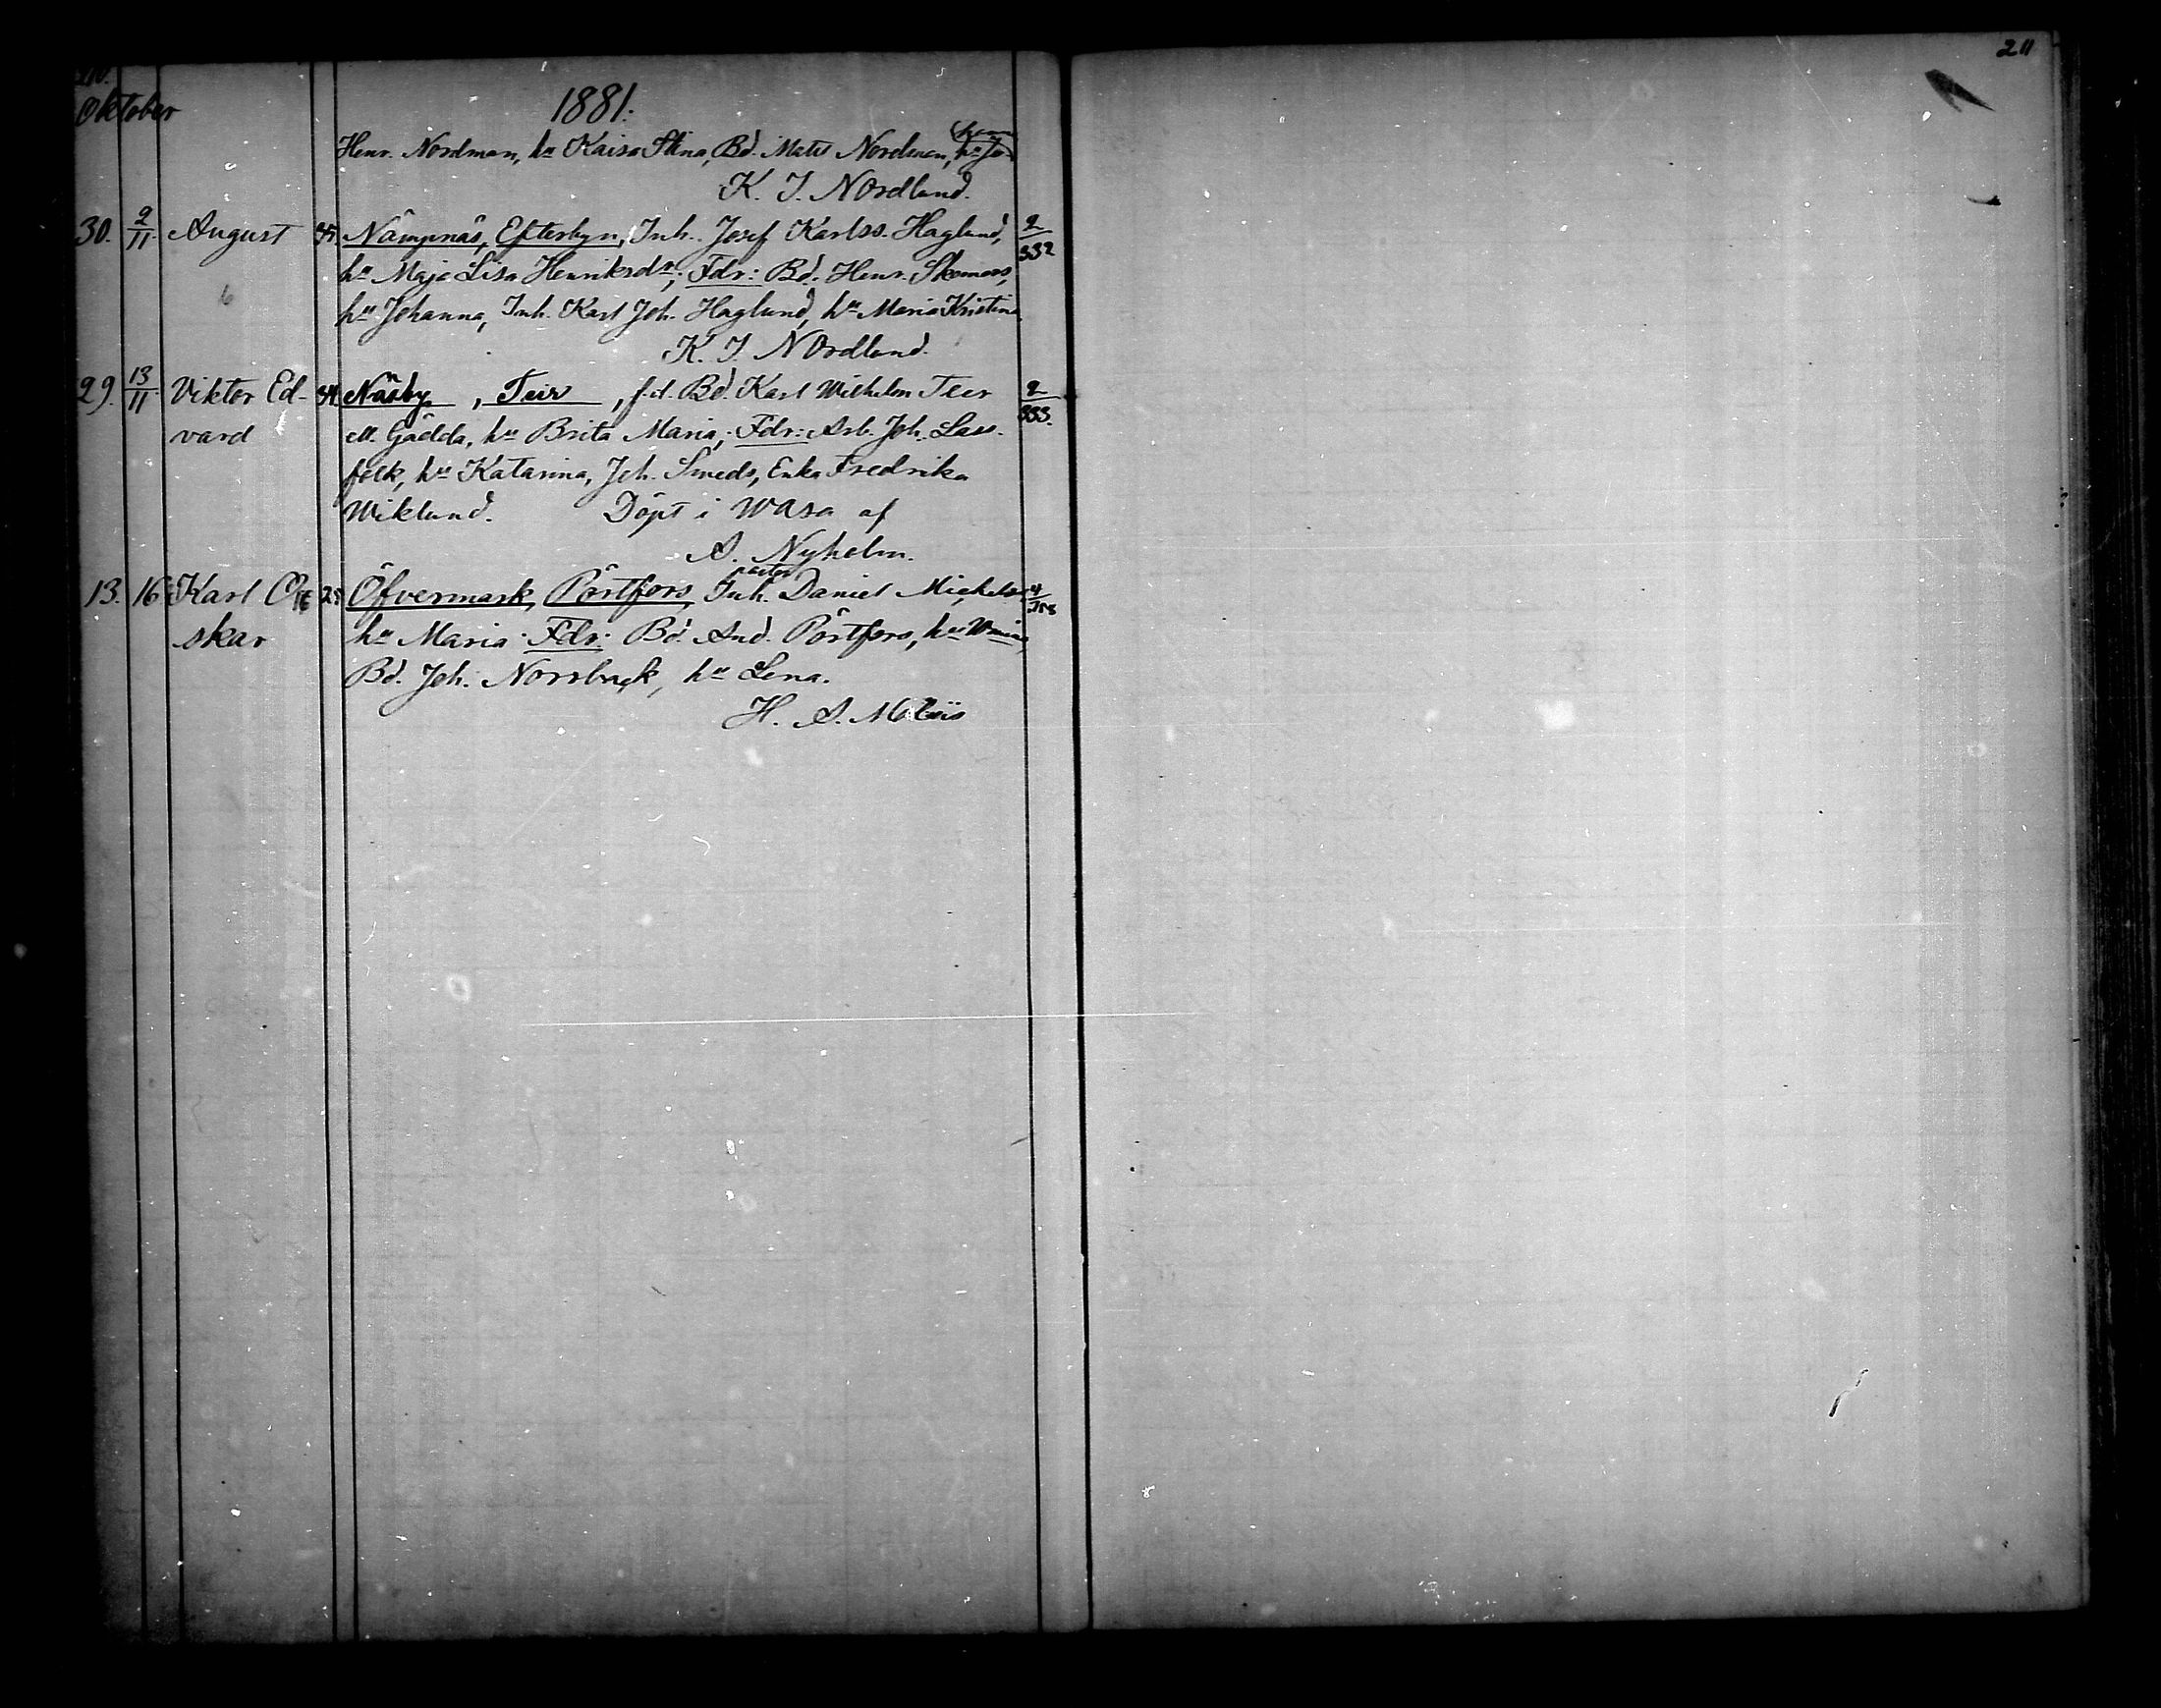 211
210.
Oktober
1881.
Henr. Nordman, hu Kaisa Stina, Bd. Mats Nordman, hu Jo-
hanna
K. J. Nordlund.
30. 2/11. August 35. Nämpnäs, Efterbyn, Inh. Josef Karlss. Haglund, 2/332
hu Maja Lisa Henriksdr; Fdr: Bd. Henr. Skomars,
6
hu Johanna, Inh. Karl Joh. Haglund, hu Maria Kristina
K. J. Nordlund.
29. 13/11 Viktor Ed- 34 Näsby, Teir, f.d. Bd. Karl Wilhelm Teir 2/333.
vard ell. Gädda, hu Brita Maria; Fdr: Arb. Joh. Lass-
folk, hu Katarina, Joh. Smeds, Enka Fredrika
Wiklund. Döpt i Wasa af
A. Nyholm.
13. 16 Karl O- 25 Öfvermark, Pörtfors, Inh. Daniel Michelss
skar hu Maria. Fdr: Bd. And. Pörtfors, hu
Bd. Joh. Norrback, hu Lena.
H. A.